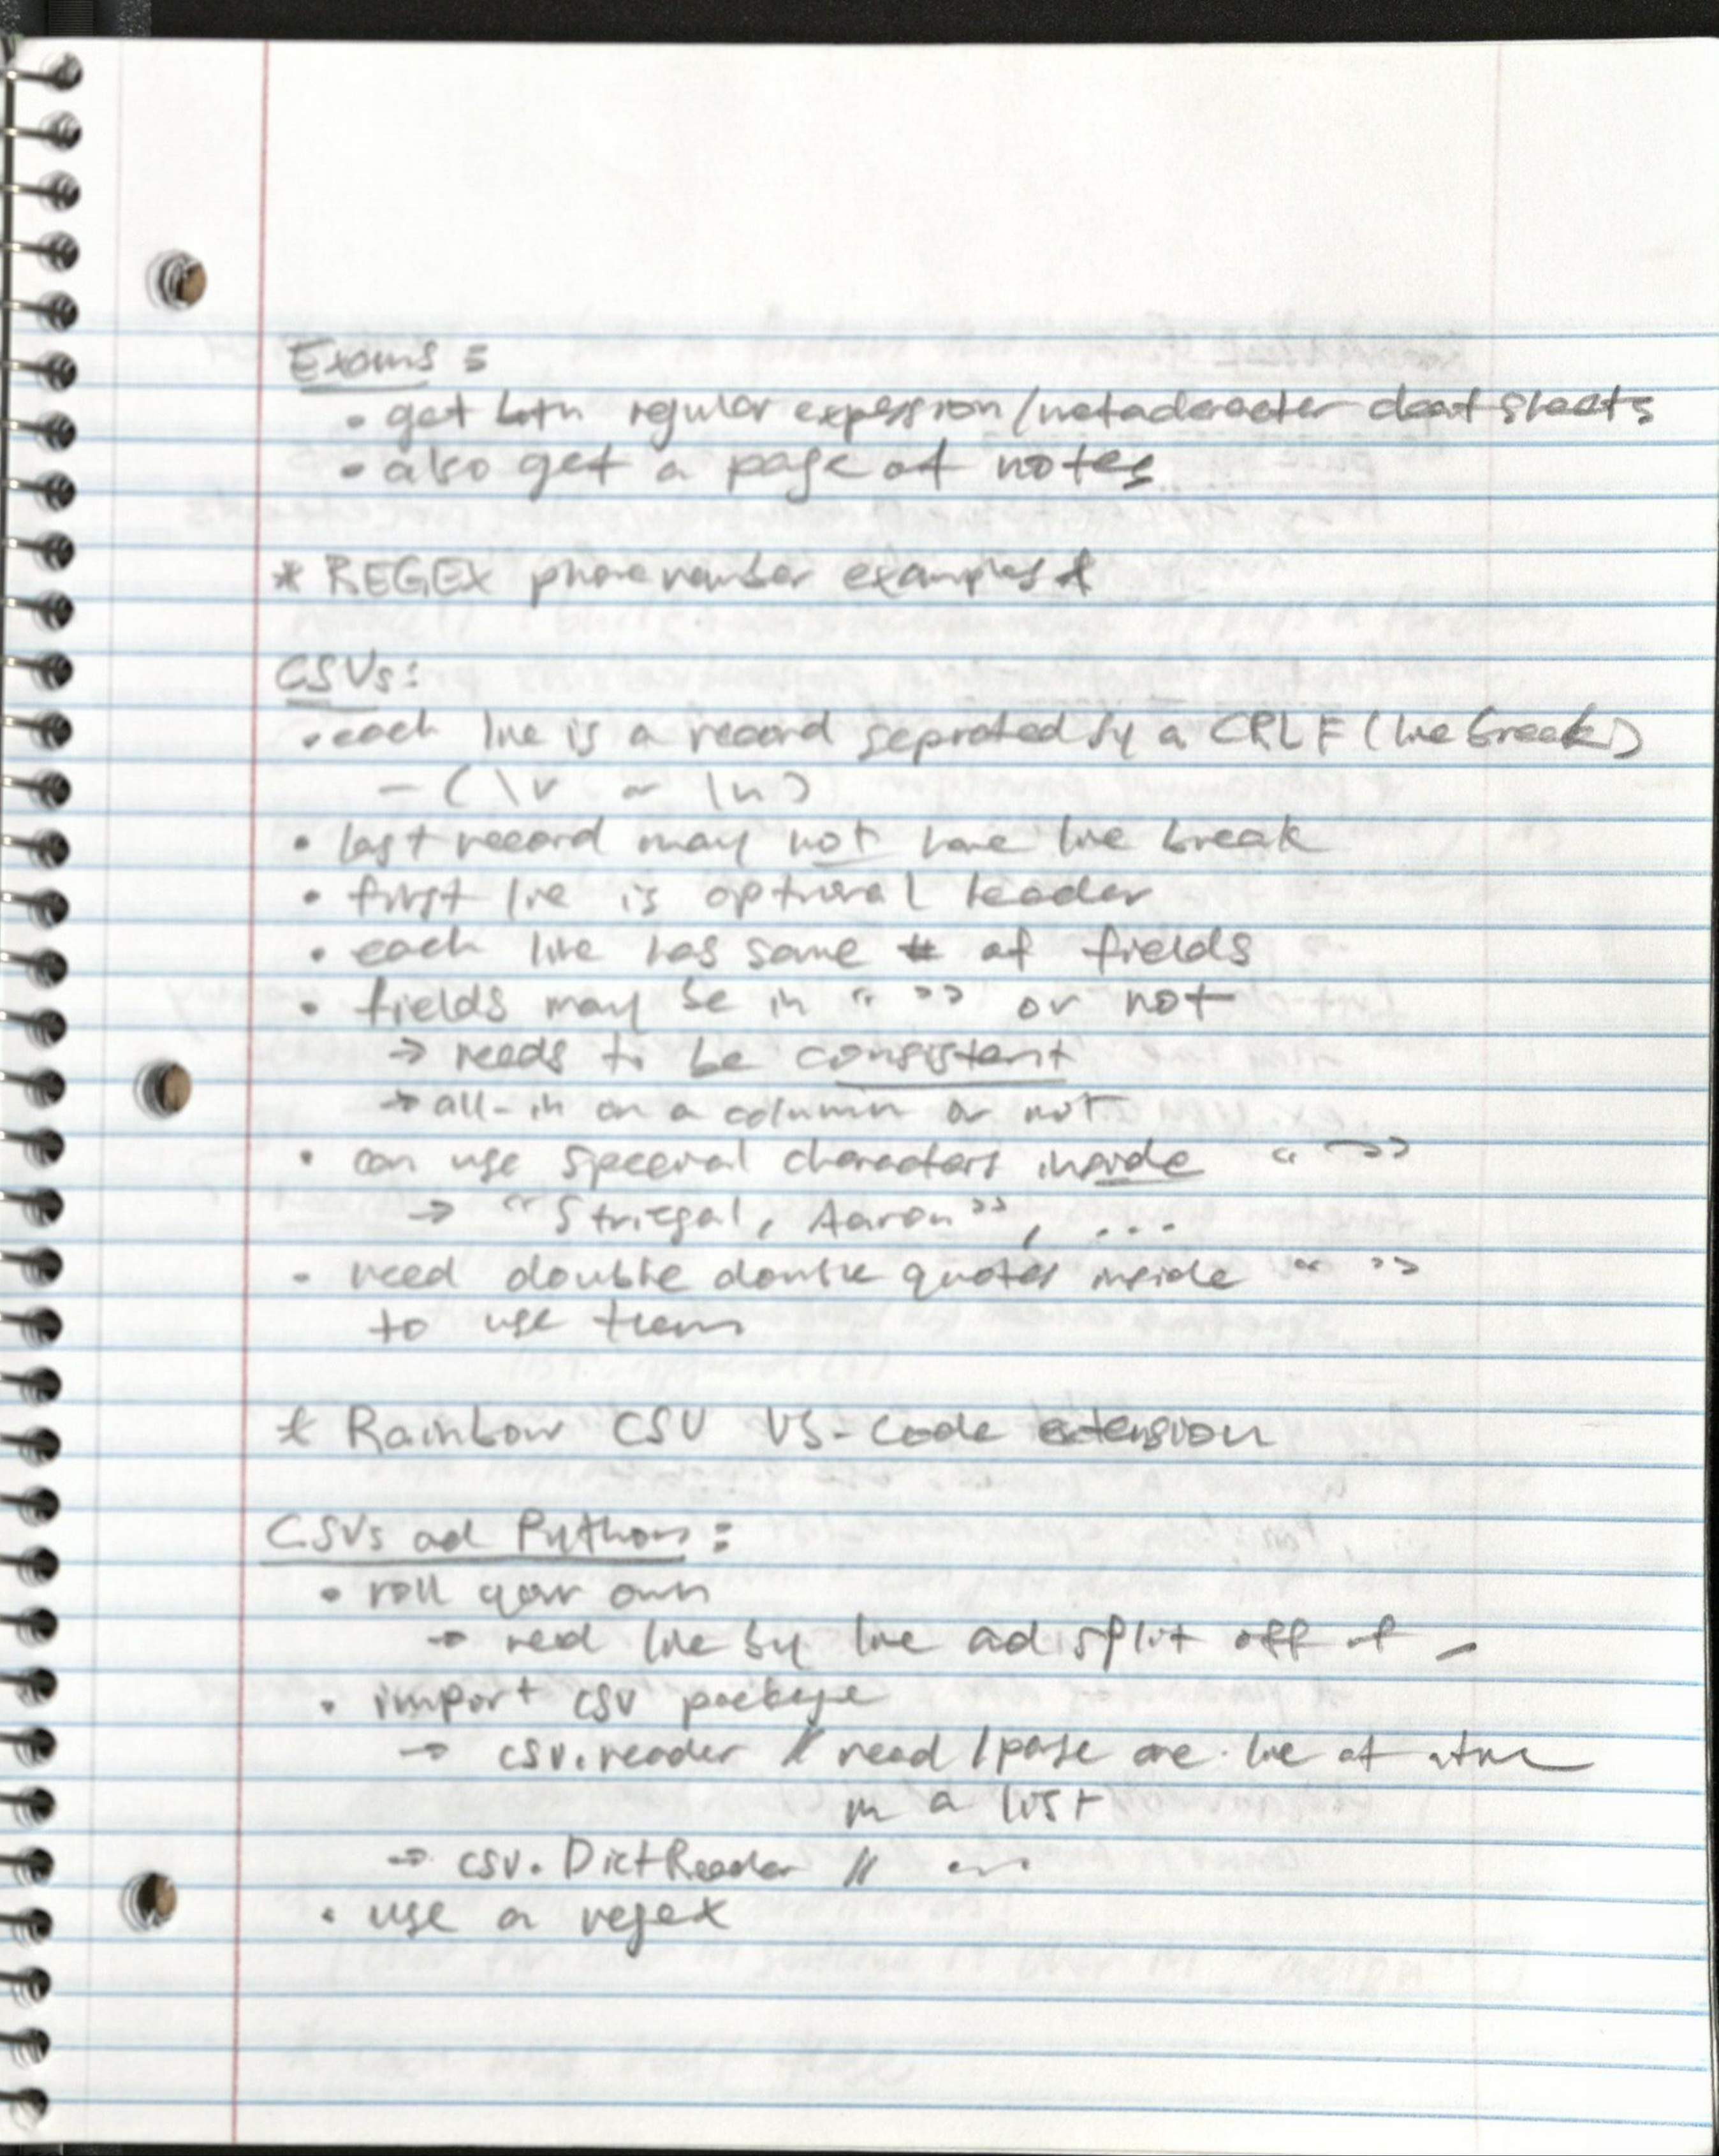 Exams:
• get both regular expession/metacharacter cheat sheets
• also get a page of notes
* REGEX phone number examples *
CSVs:
• each line is a record seprated by a CRLF (line break)
- (\r or \n)
• last record may not have line break
• first line is optional header
• each line has same # of fields
• fields may be in “ ” or not
→ needs to be consistent
→ all-in on a column or not
• can use special characters inside “ ”
→ “Striegal, Aaron”, ...
• need double double quotes inside “ ”
to use them
* Rainbow CSV VS-Code extension
CSVs and Python:
• roll your own
→ read line by line and split off of _
• import csv package
→ csv.reader // read/parse one line at a time
in a list
→ csv.DictReader //
• use a regex